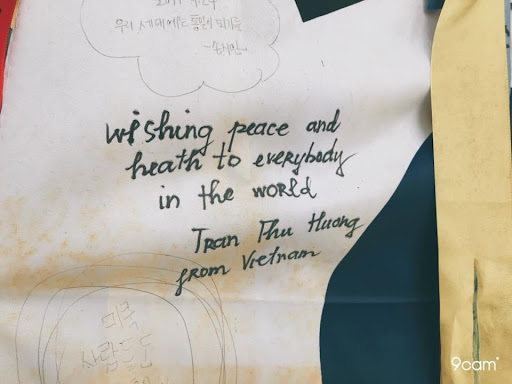 우리 세대에도 통일이 되기를
wishing peace and
heath to everybody
in the world
Tran Thu Huong
from Vietnam
미국
사람들은
9cam